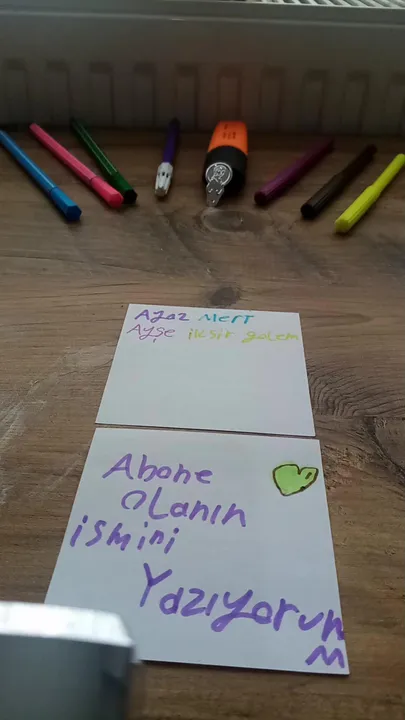 Ayaz Mert
Ayşe iksir golem
Abone
Olanın
ismini
Yazıyorum
M